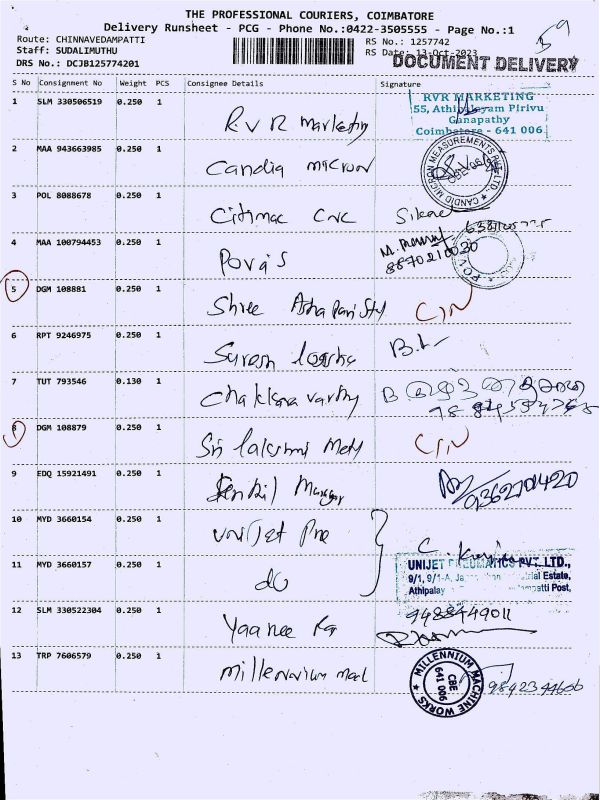 THE PROFESSIONAL COURIERS, COIMBATORE
Delivery Runsheet - PCG - Phone No.:0422-3505555 - Page No.:1
Route: CHINNAVEDAMPATTI
RS No.: 1257742
Staff: SUDALIMUTHU
RS Date: 13-Oct-2023
DRS No.: DCJB125774201
DOCUMENT DELIVERY
S No Consignment No Weight PCS Consignee Details Signature
1 SLM 330506519 0.250 1 RVR Marketing
RVR MARKETING
55, Athipalayam Pirivu
Ganapathy
Coimbatore - 641 006
2 MAA 943663985 0.250 1 Candia micron
CANDID MICRON MEASUREMENTS PVT. LTD.
3 POL 8088678 0.250 1 Citimac CNC
4 MAA 100794453 0.250 1 Pova's
8870210030
5 DGM 108881 0.250 1 Shree
6 RPT 9246975 0.250 1 Suresh
7 TUT 793546 0.130 1 Chakkravarthy
8 DGM 108879 0.250 1 Sri lakshmi
9 EDQ 15921491 0.250 1
9362701420
10 MYD 3660154 0.250 1 Unijet Pne
11 MYD 3660157 0.250 1 do
UNIJET PNEUMATICS PVT. LTD.,
9/1, 9/1-A,
Estate,
Athipalay
Post,
12 SLM 330522304 0.250 1 Yaanee
9488449011
13 TRP 7606579 0.250 1 Millennium
MILLENNIUM MACHINE WORKS
CBE
641 006